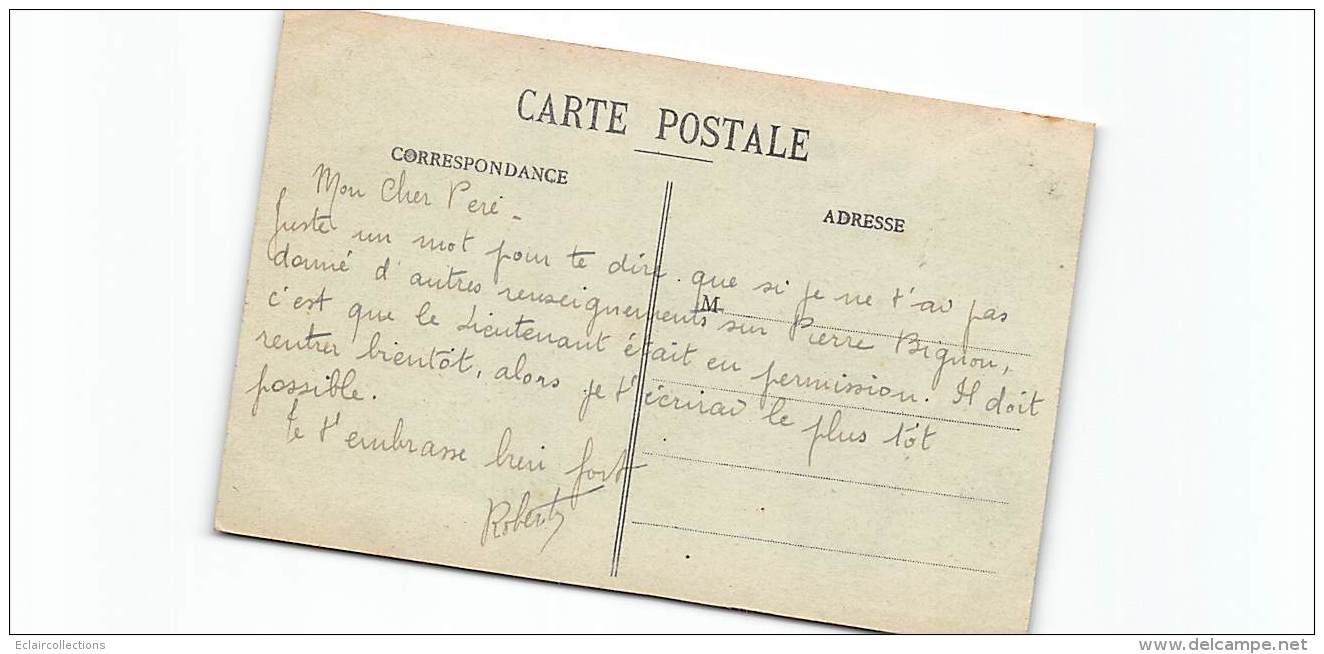 CARTE POSTALE
CORRESPONDANCE
ADRESSE
M
Mon Cher Père -
Juste un mot pour te dire que si je ne t'ai pas
donné d'autres renseignements sur Pierre Bignon,
c'est que le Lieutenant était en permission. Il doit
rentrer bientôt, alors je t'écrirai le plus tôt
possible.
Je t'embrasse bien fort
Robert
Eclaircollections
delcampe.net